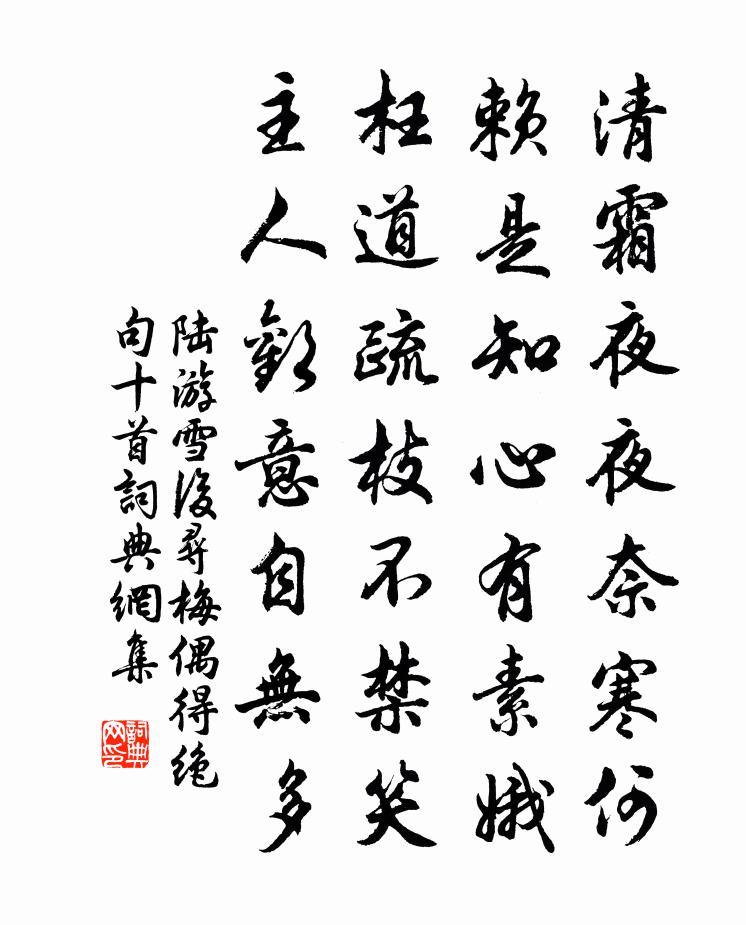 清霜夜夜奈寒何
賴是知心有素娥
枉道疏枝不禁笑
主人歡意自無多
陆游雪後尋梅偶得绝
句十首詞典網集
詞典
网印